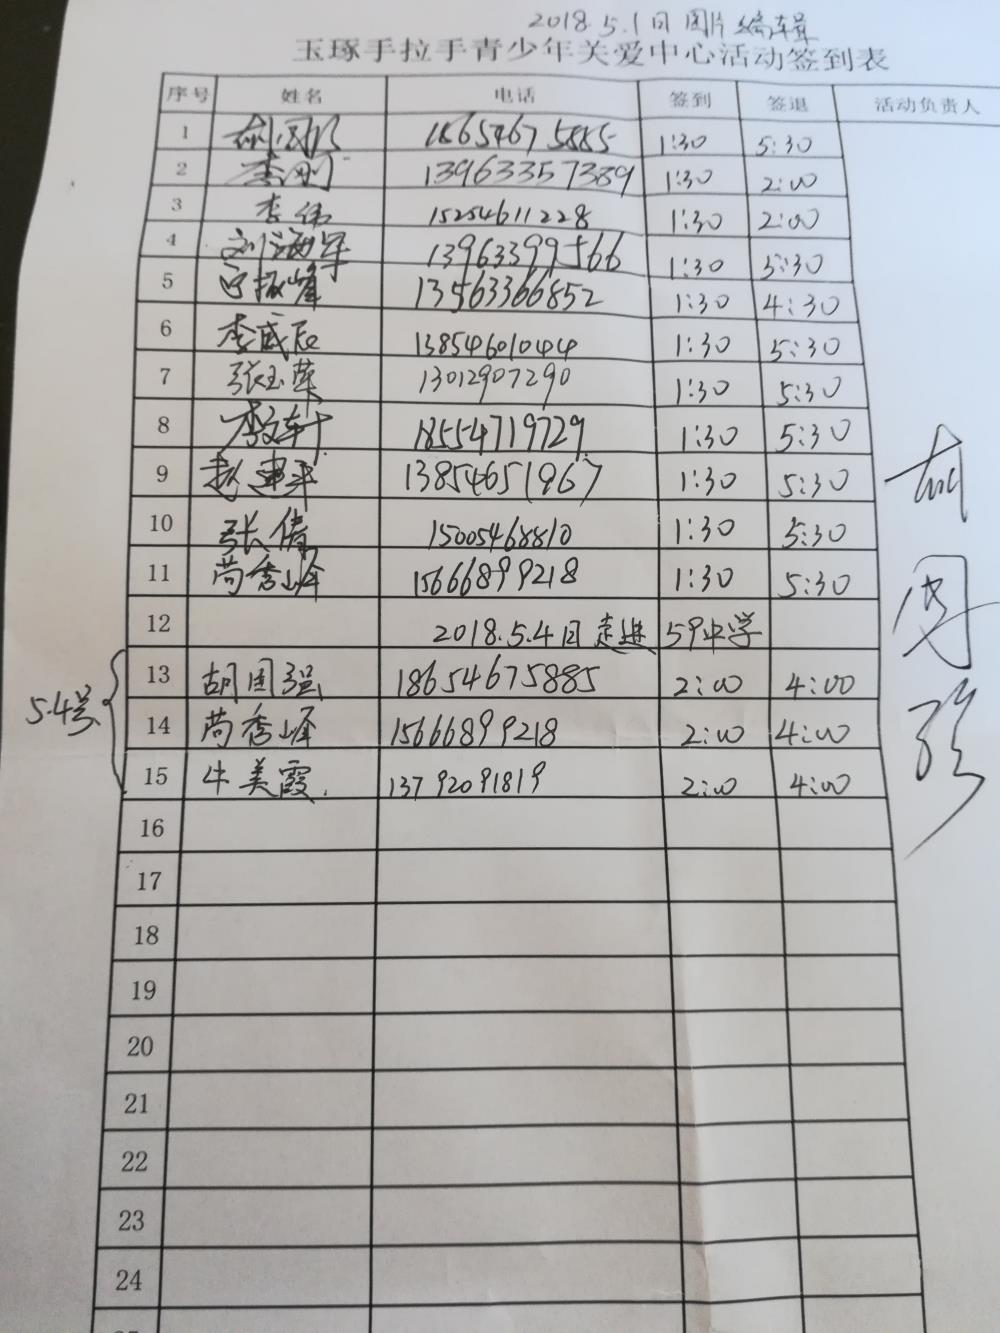 2018.5.1日 图片编辑
玉琢手拉手青少年关爱中心活动签到表
序号 姓名 电话 签到 签退 活动负责人
1 胡国强 18654675885 1:30 5:30
2 李刚 13963357389 1:30 2:00
3 李伟 15254611228 1:30 2:00
4 刘海军 13963399566 1:30 5:30
5 振峰 13563366852 1:30 4:30
6 李成辰 13854601044 1:30 5:30
7 张玉荣 13012907290 1:30 5:30
8 李文军 18554719729 1:30 5:30
9 赵建平 13854651967 1:30 5:30
10 张倩 15005468810 1:30 5:30
11 苘秀峰 15666899218 1:30 5:30
12 2018.5.4日走进59中学
5.4号
13 胡国强 18654675885 2:00 4:00
14 苘秀峰 15666899218 2:00 4:00
15 牛美霞 13792091819 2:00 4:00
胡国强
16
17
18
19
20
21
22
23
24